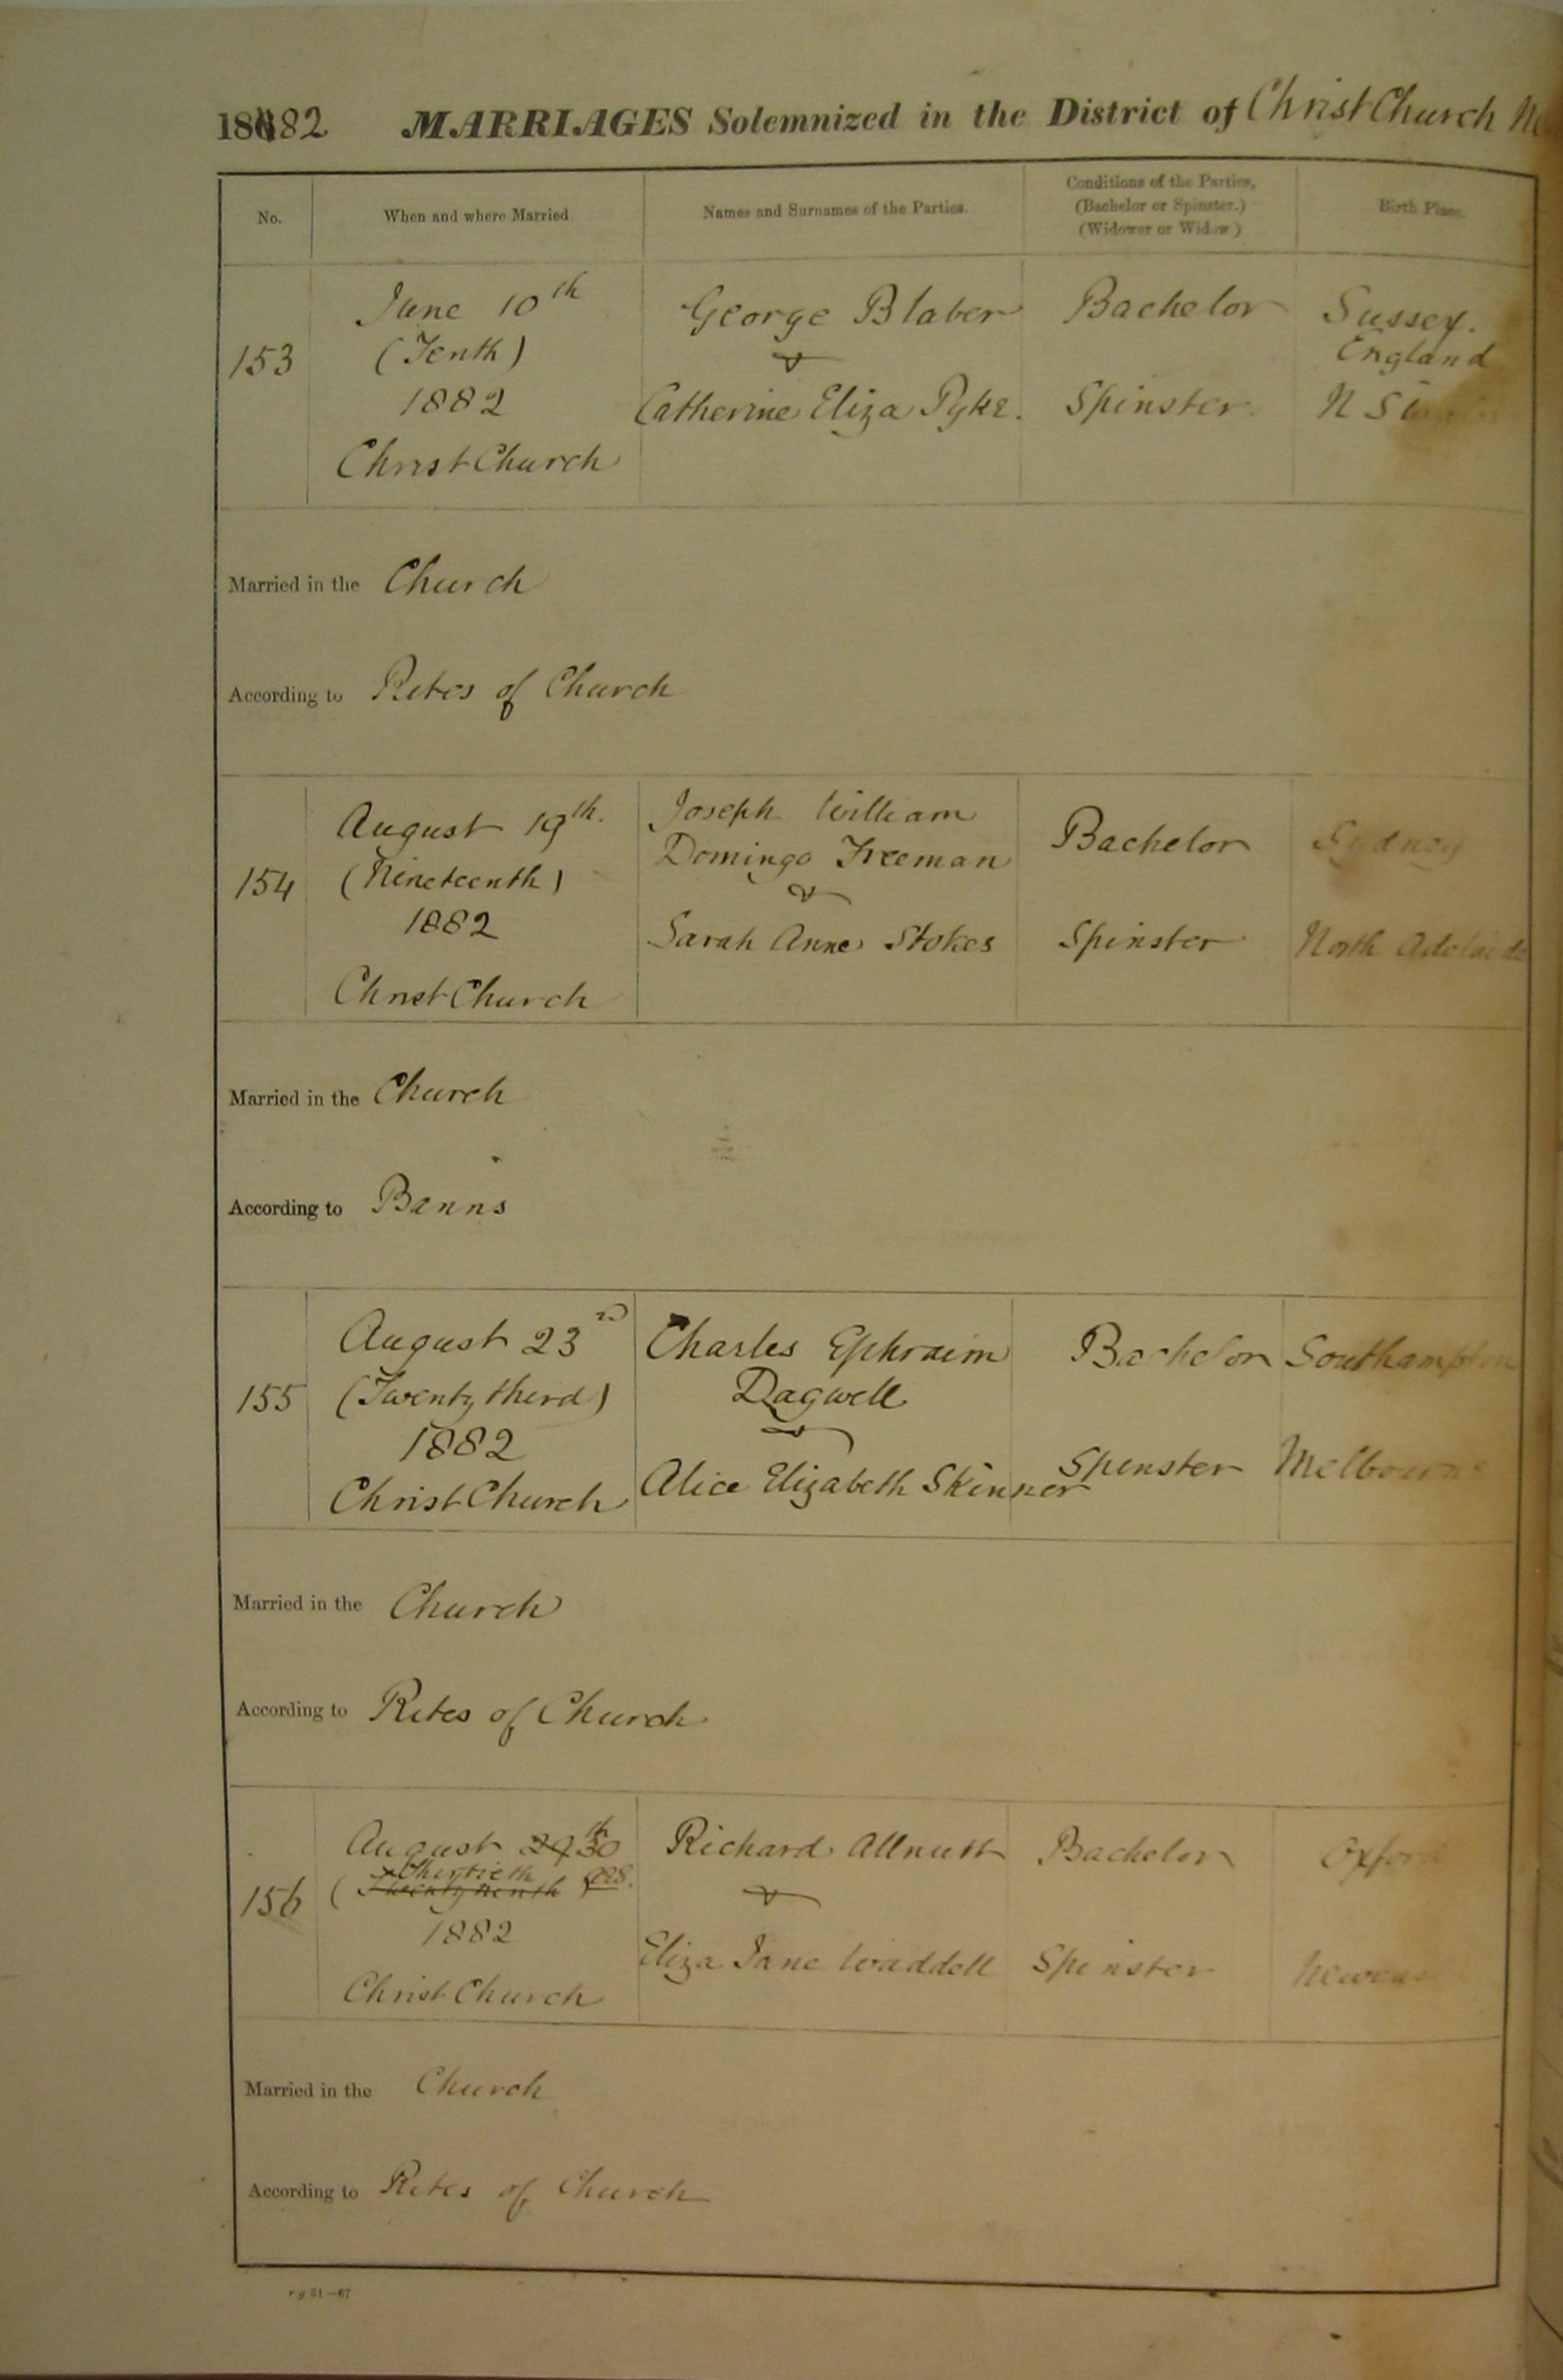 1882 MARRIAGES Solemnized in the District of Christ Church
No.
When and where Married
Names and Surnames of the Parties.
Conditions of the Parties,
(Bachelor or Spinster.)
(Widower or Widow)
Birth Place.
153
June 10th
(Tenth)
1882
Christ Church
George Blaber
&
Catherine Eliza Pyke.
Bachelor
Spinster.
Sussex.
England
N S
Married in the Church
According to Rites of Church
154
August 19th.
(Nineteenth)
1882
Christ Church
Joseph William
Domingo Freeman
&
Sarah Anne Stokes
Bachelor
Spinster
Sydney
North Adelaide
Married in the Church
According to Banns
155
August 23rd
(Twenty third)
1882
Christ Church
Charles Ephraim
Dagwell
&
Alice Elizabeth Skinner
Bachelor
Spinster
Southampton
Melbourne
Married in the Church
According to Rites of Church
156
August 29 30th
Thirtieth
(Twenty ninth)
1882
Christ Church
Richard Allnutt
&
Eliza Jane Waddell
Bachelor
Spinster
Oxford
Married in the Church
According to Rites of Church